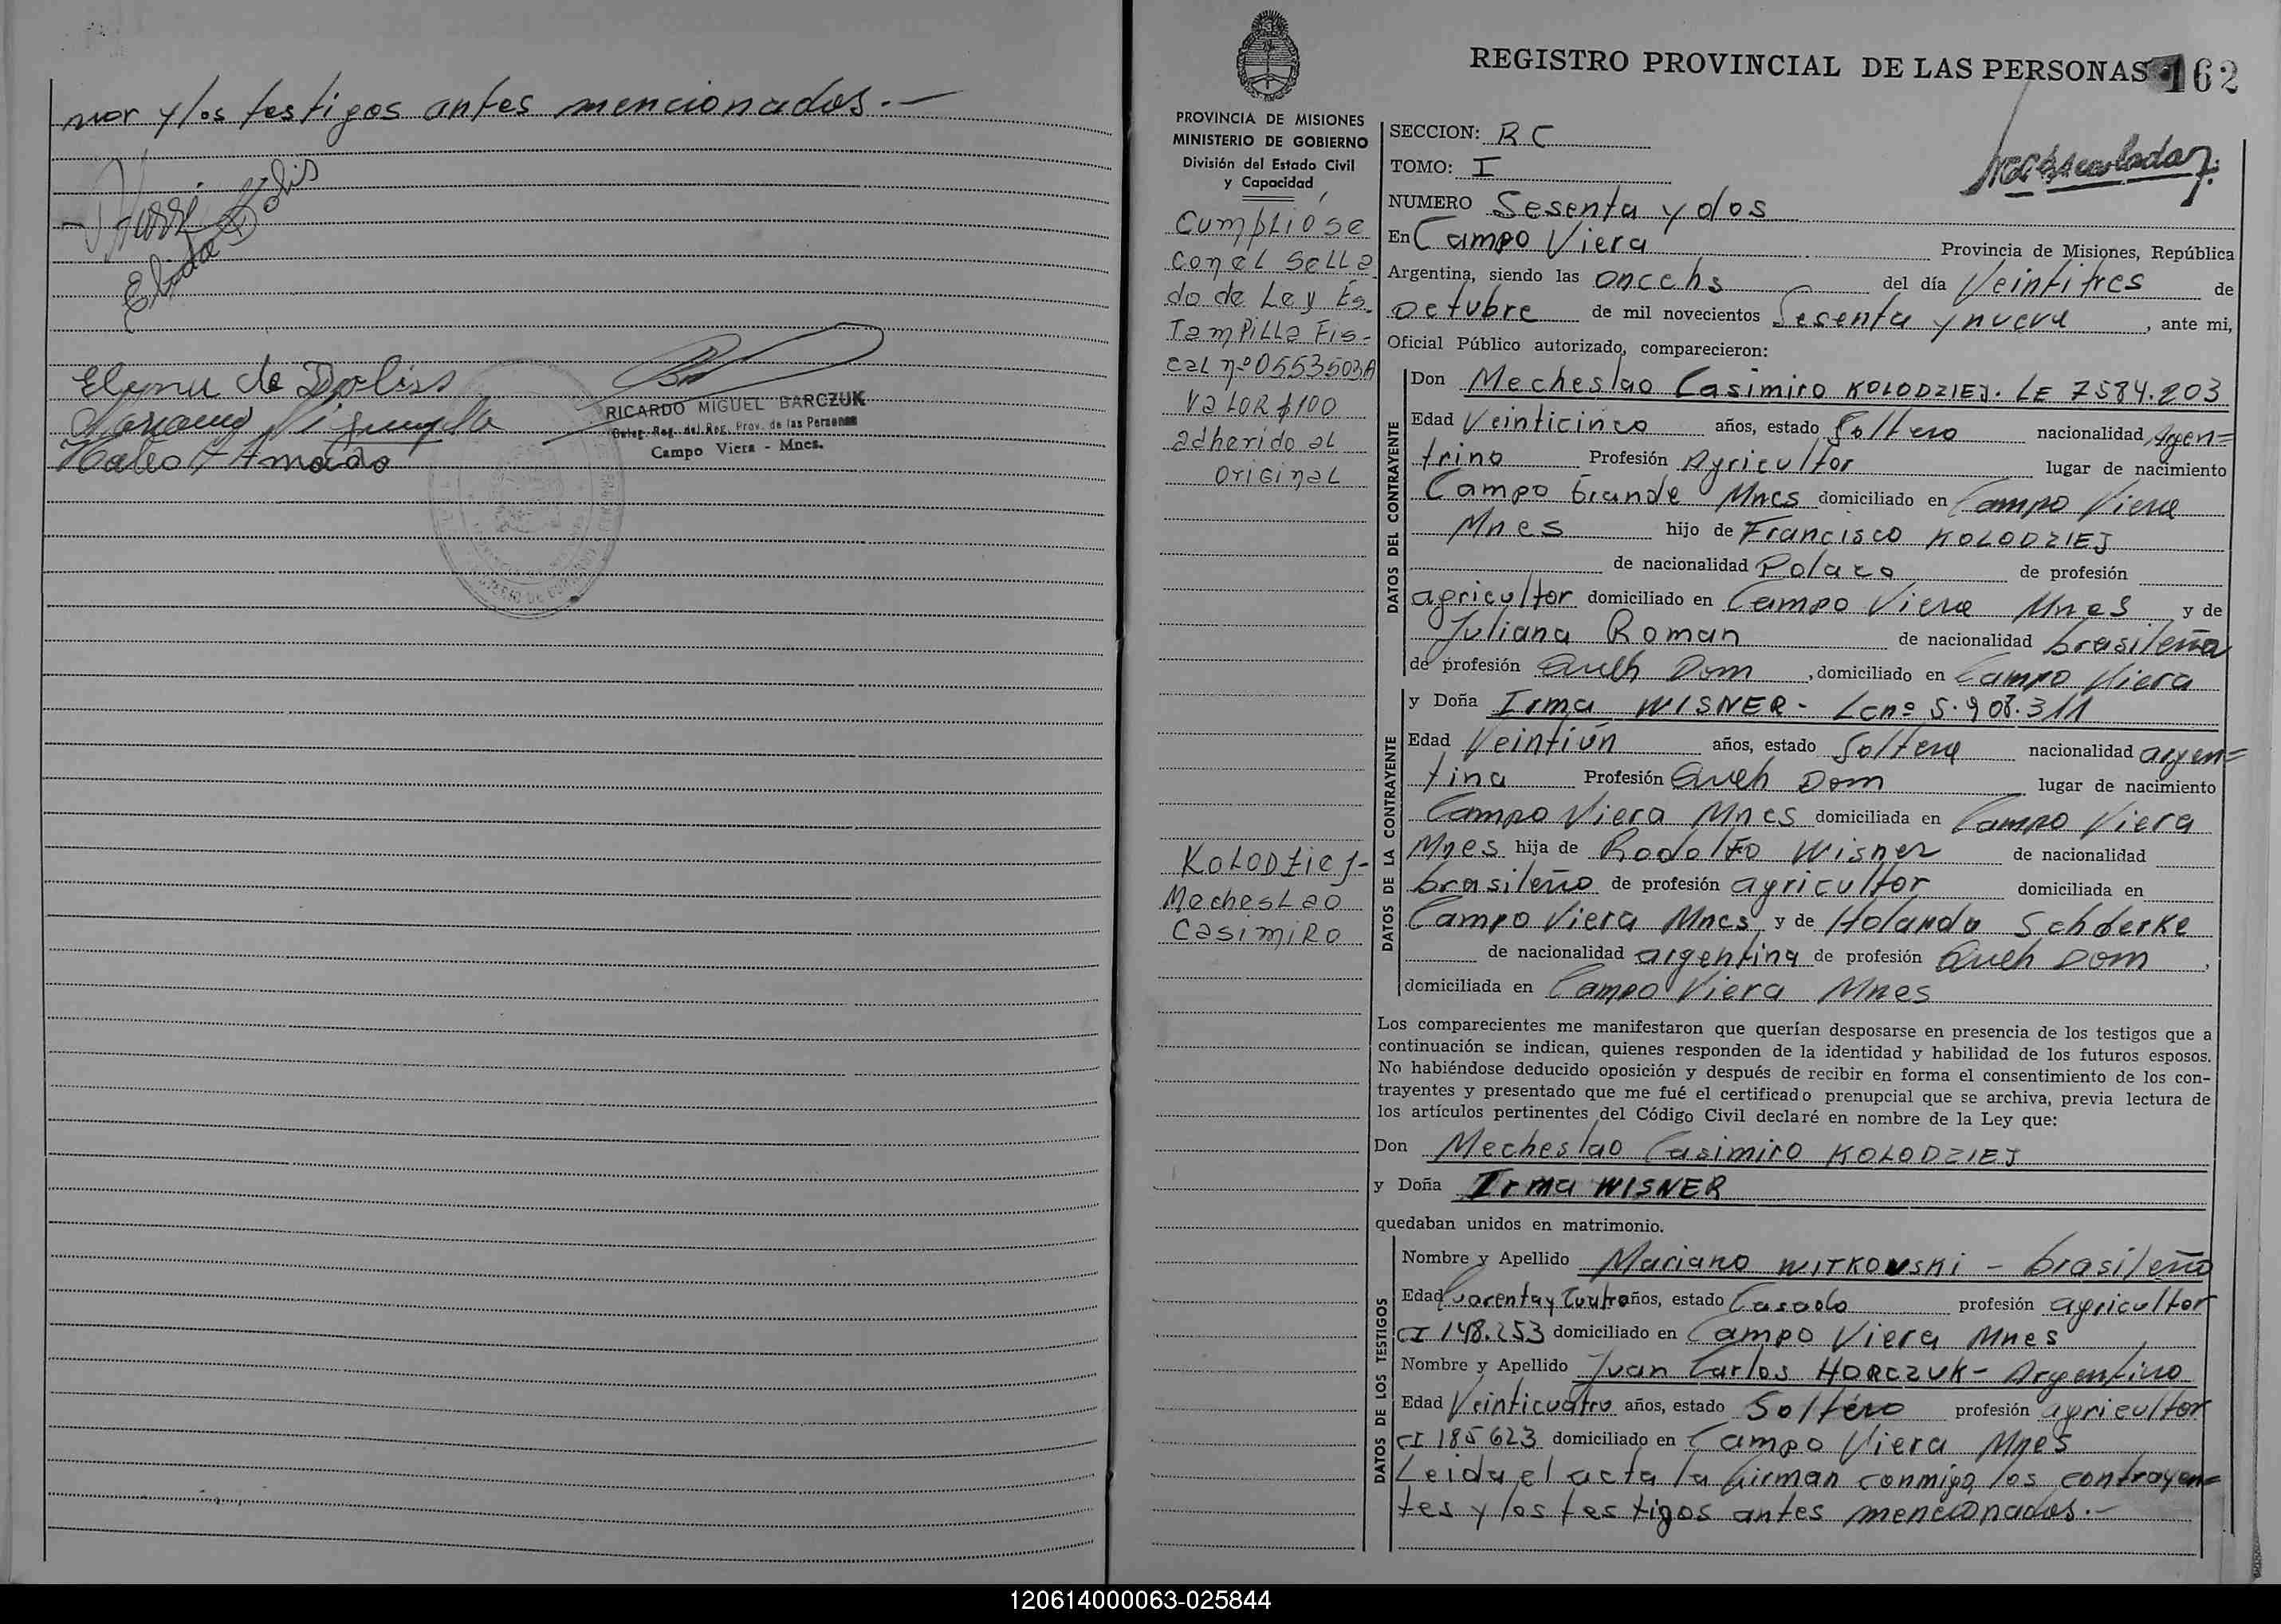 nor y los testigos antes mencionados.-
Elida Dolis
Elena de Dolis
RICARDO MIGUEL BARCZUK
Deleg. Reg. del Reg. Prov. de las Personas
Campo Viera - Mnes.
REGISTRO PROVINCIAL DE LAS PERSONAS 162
PROVINCIA DE MISIONES
MINISTERIO DE GOBIERNO
División del Estado Civil
y Capacidad
Cumplióse
con el sella
do de Ley Es
Tampilla Fis-
cal nº 0553503A
Valor $100
adherido al
original
KOLODZIEJ-
Mecheslao
Casimiro
SECCION: RC
TOMO: I
NUMERO Sesenta y dos
En Campo Viera Provincia de Misiones, República
Argentina, siendo las once hs del día Veintitres de
octubre de mil novecientos Sesenta y nueve, ante mi,
Oficial Público autorizado, comparecieron:
DATOS DEL CONTRAYENTE
Don Mecheslao Casimiro KOLODZIEJ. LE 7584.203
Edad Veinticinco años, estado Soltero nacionalidad Argen=
trino Profesión Agricultor lugar de nacimiento
Campo Grande Mnes domiciliado en Campo Viera
Mnes hijo de Francisco KOLODZIEJ
de nacionalidad Polaco de profesión
agricultor domiciliado en Campo Viera Mnes y de
Juliana Roman de nacionalidad brasileña
de profesión Queh Dom, domiciliado en Campo Viera
DATOS DE LA CONTRAYENTE
y Doña Irma WISNER - Lc nº 5.908.311
Edad Veintiún años, estado Soltera nacionalidad argen=
tina Profesión Queh Dom lugar de nacimiento
Campo Viera Mnes domiciliada en Campo Viera
Mnes hija de Rodolfo Wisner de nacionalidad
brasileño de profesión agricultor domiciliada en
Campo Viera Mnes y de Holanda Schoerke
de nacionalidad argentina de profesión Queh Dom,
domiciliada en Campo Viera Mnes
Los comparecientes me manifestaron que querían desposarse en presencia de los testigos que a
continuación se indican, quienes responden de la identidad y habilidad de los futuros esposos.
No habiéndose deducido oposición y después de recibir en forma el consentimiento de los con-
trayentes y presentado que me fué el certificado prenupcial que se archiva, previa lectura de
los artículos pertinentes del Código Civil declaré en nombre de la Ley que:
Don Mecheslao Casimiro KOLODZIEJ
y Doña Irma WISNER
quedaban unidos en matrimonio.
DATOS DE LOS TESTIGOS
Nombre y Apellido Mariano WITKOWSKI - brasileño
Edad Cuarenta y Cuatro años, estado Casado profesión agricultor
CI 148.253 domiciliado en Campo Viera Mnes
Nombre y Apellido Juan Carlos HORCZUK - Argentino
Edad Veinticuatro años, estado Soltero profesión agricultor
CI 185623 domiciliado en Campo Viera Mnes
Leida el acta la firman conmigo, los contrayen=
tes y los testigos antes mencionados.-
120614000063-025844